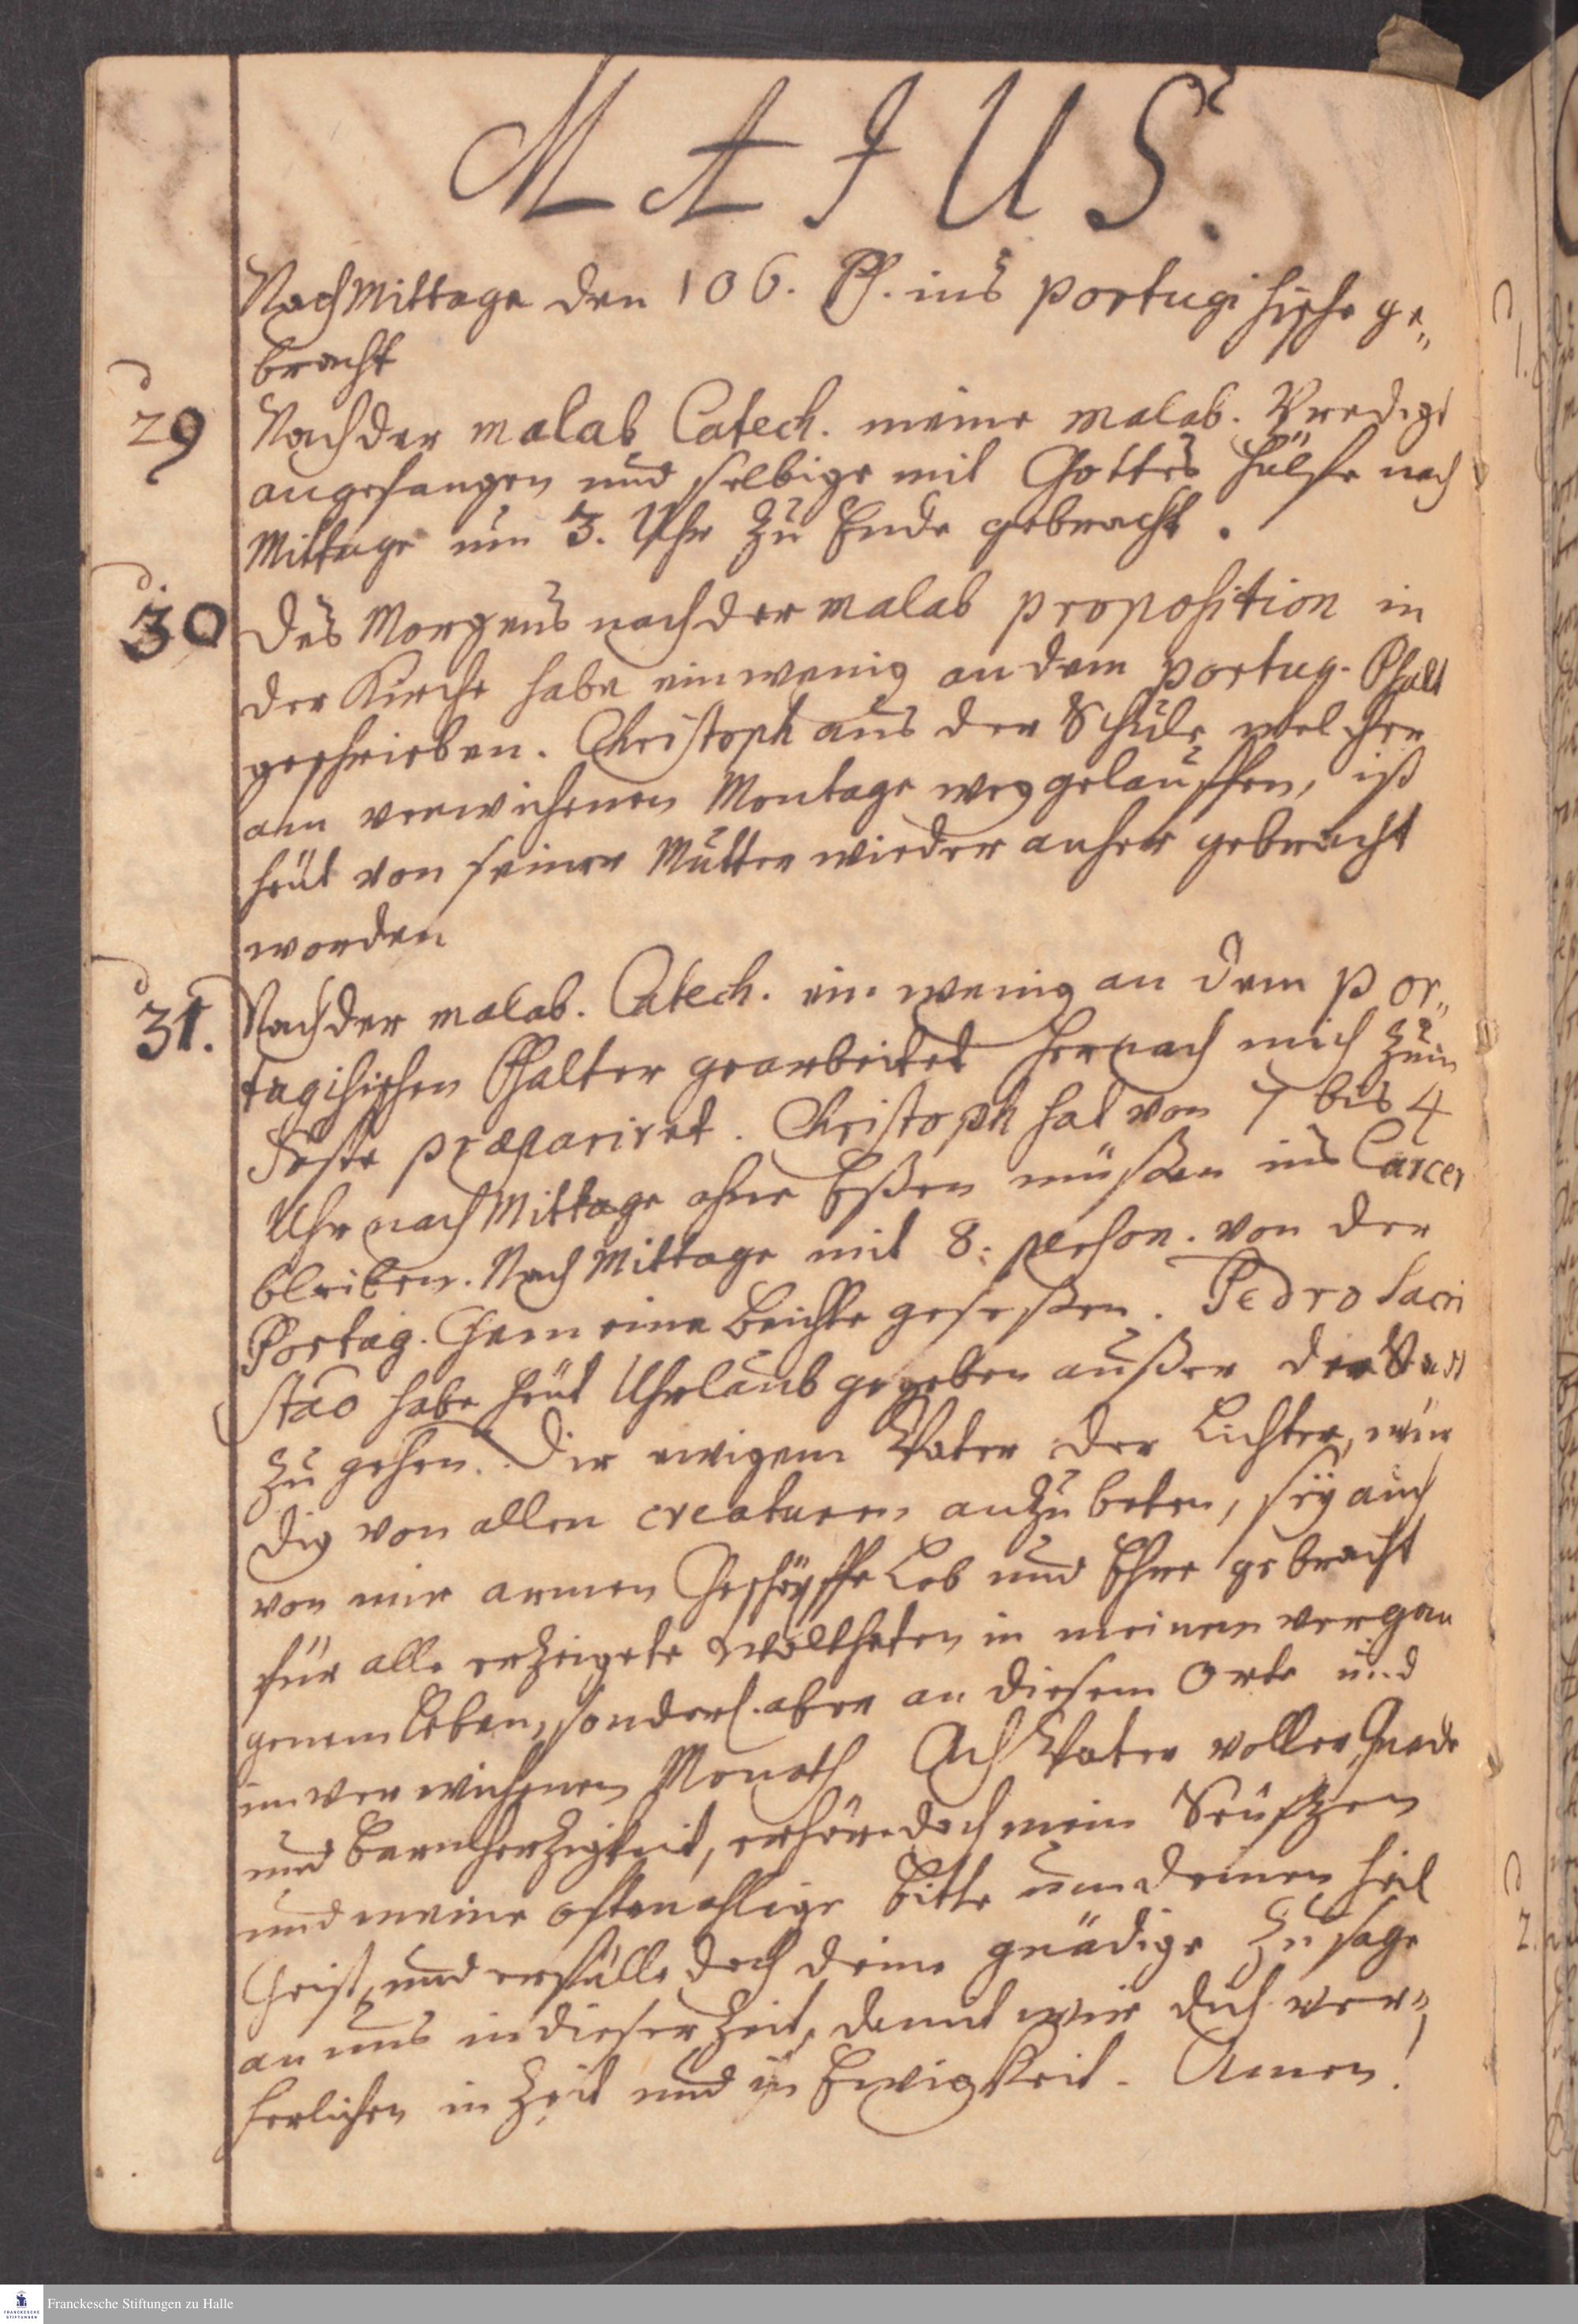 MAJUS.
Nach Mittage den 106. Ps. ins portugisische ge„
bracht
d
29 Nach der malab Catech. meine malab. Predigt
angefangen und selbige mit Gottes Hülfe nach
Mittage um 3. Uhr zu Ende gebracht.
d.
30 Des Morgens nach der malab proposition in
der Kirche habe ein wenig an dem portug. Psalt
geschrieben. Christoph aus der Schule welcher
am verwichenen Montage weg gelauffen, ist
heüt von seiner Mutter wieder anher gebracht
worden
d
31. Nach der malab. Catech. ein wenig an dem por„
tugisischen Psalter gearbeitet hernach mich zum
Feste præpariret. Christoph hat von 7 bis 4
Uhr nach Mittage ohne Eßen müßen ins Carcer
bleiben. Nach Mittage mit 8: person. von der
Portug. Gemeine Beichte geseßen. Pedro Sacri
stao habe heüt Uhrlaub gegeben außer der Stadt
zu gehen. Dir ewigem Vater der Lichter, wür
dig von allen creaturen anzubeten, seÿ auch
von mir armen Geschöpffe Lob und Ehre gebracht
für alle erzeigete Wolthaten in meinem vergan
genem Leben, sonderl. aber an diesem Orte und
im verwichenen Monath Ach Vater voller Gnade
und Barmherzigkeit, erhöre doch mein Seüfzen
und meine oftmahlige Bitte um deinen Heil
Geist, und erfülle doch deine gnädige Zusage
an uns in dieser Zeit, damit wir dich ver„
herlichen in Zeit und in Ewigkeit. Amen!
Franckesche Stiftungen zu Halle